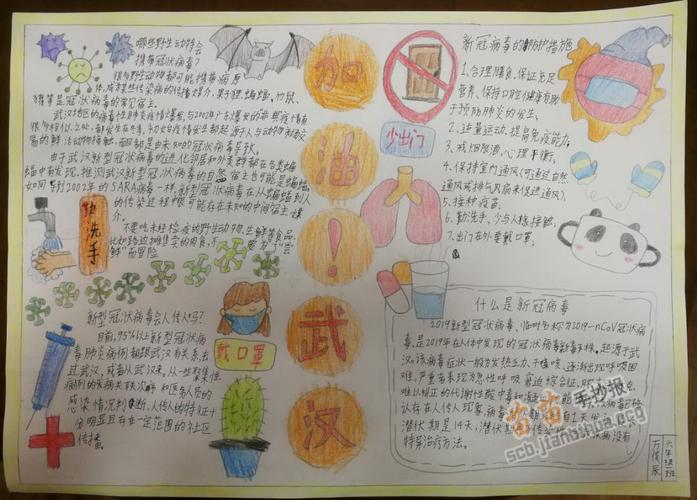 哪些野生动物会
携带冠状病毒?
很多野生动物都可能携带病原
体,成为某些传染病的传播媒介,果子狸、蝙蝠、竹鼠、
獾等是冠状病毒的常见宿主。
武汉地区的病毒性肺炎疫情爆发,与2002年广东爆发的
由于武汉新型冠状病毒的进化邻居和外类群都在各类蝙
蝠中有发现,推测武汉新型冠状病毒的自然宿主也可能是蝙蝠,
如同导到2002年的SARA病毒一样,新型冠状病毒在从蝙蝠到人
的传染过程中很可能存在未知的中间宿主媒
介。
不要吃未经检疫的野生动物、生鲜等食品,
鲜"而冒险
勤洗手
加
油
!
武
汉
少出门
戴口罩
新冠病毒的防护措施
1、合理膳食、保证充足
营养、保持口腔健康有助
于预防肺炎的发生;
2、适量运动、提高免疫能力;
3、戒烟限酒、心理平衡;
4、保持室内通风(可通过自然
通风或排气风扇来促进通风);
5、接种疫苗;
6、勤洗手、少与人接触;
7、出门在外要戴口罩;
新型冠状病毒会人传人吗?
目前,95%以上新型冠状病
毒肺炎病例都跟武汉有关系,去
过武汉,或者从武汉来,从一些聚集性
病例的发病关联次序和医务人员的
感染情况判断,人传人的特征十
分明显且存在一定范围的社区
传播。
什么是新冠病毒
2019新型冠状病毒,临时名称为2019-nCoV冠状病
毒,是2019年在人体中发现的冠状病毒新毒株。起源于武
汉。该病毒症状一般为发热、乏力、干咳、逐渐出现呼吸困
难,严重者表现为急性呼吸窘迫综合征、
难以纠正的代谢性酸中毒和
潜伏期是14天,
特异治疗方法。
苗苗手抄报
scb.jianglhua.org.cn
六年级班